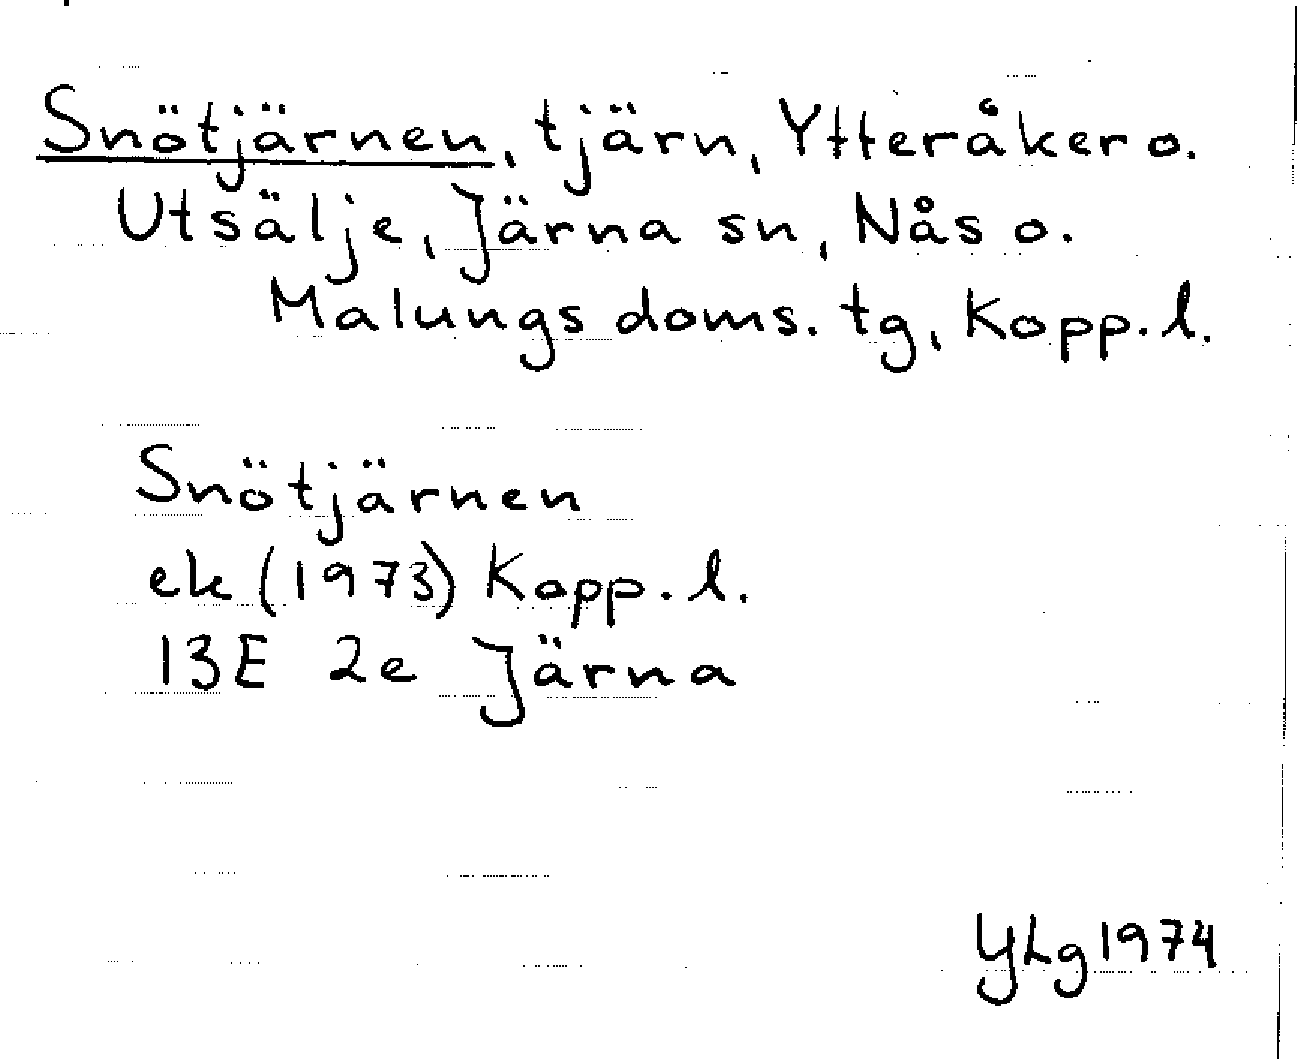 Snötjärnen, tjärn, Ytteråker o.
Utsälje, Järna sn, Nås o.
Malungs doms. tg, Kopp. l.
Snötjärnen
ek (1973) Kopp. l.
13E 2e Järna
YLg 1974